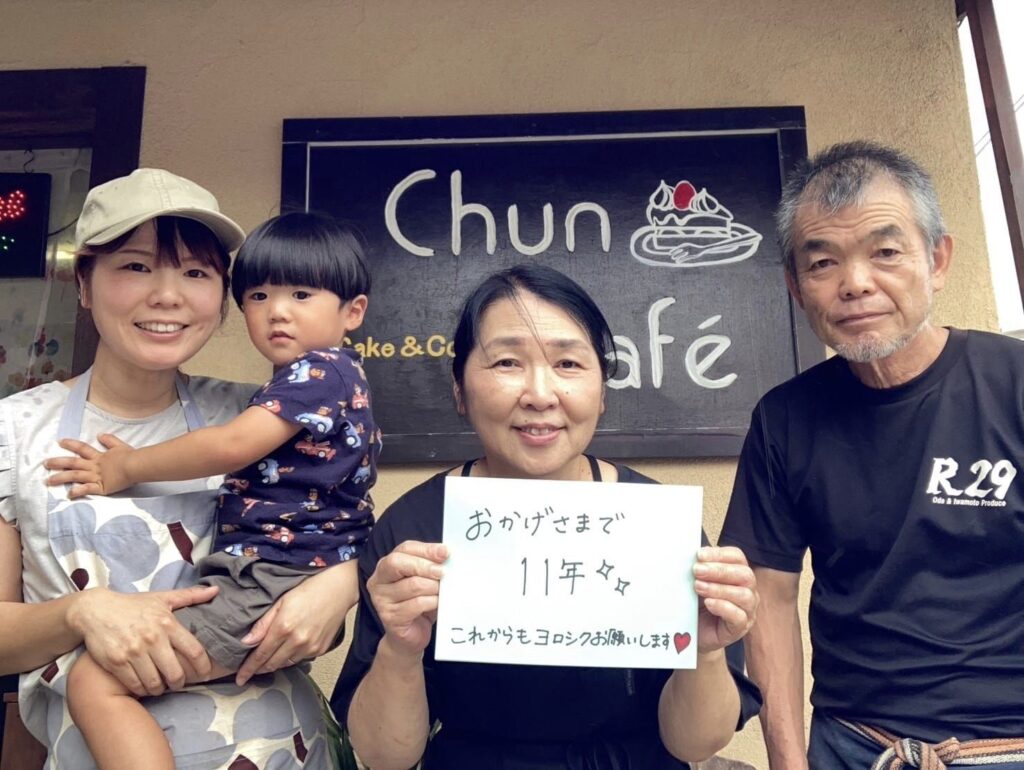 Chun
Café
Cake & Co
おかげさまで
11年
これからもヨロシクお願いします
R.29
Oda & Iwamoto Produce